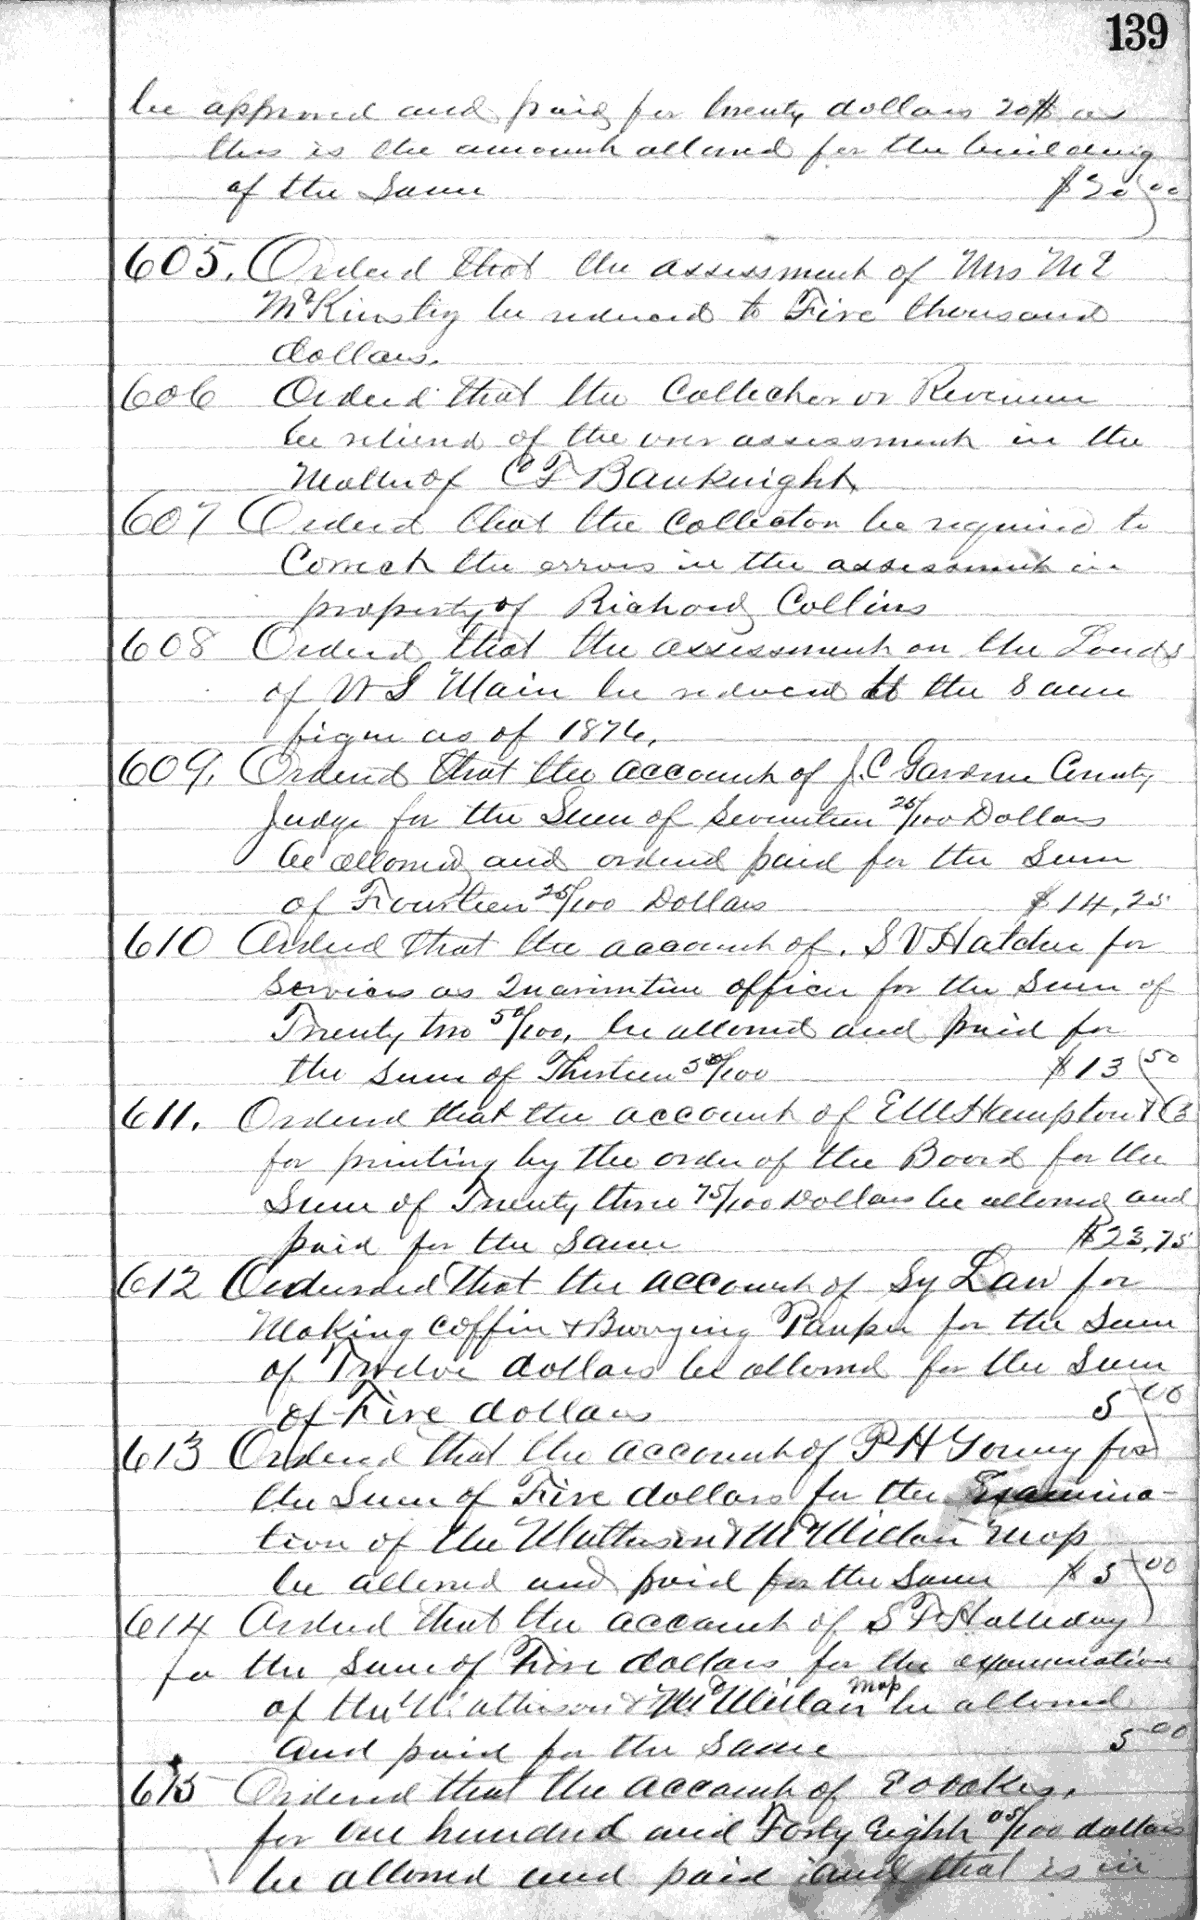 139
be approved and paid for twenty dollars 20$ as
this is the amount allowed for the building
of the Same $20 00
605. Ordered that the assessment of Mrs M E
McKinstry be reduced to Five thousand
dollars.
606 Ordered that the Collector or Revenue
be relieved of the over assessment in the
Matter of C F Bauknight
607 Ordered that the Collector be required to
Correct the errors in the assessment in
property of Richard Collins
608 Ordered that the assessment on the Lands
of W S Main be reduced to the Same
figure as of 1876.
609. Ordered that the account of J.C Gardner County
Judge for the Sum of Seventeen 25/100 Dollars
be allowed and ordered paid for the Sum
of Fourteen 25/100 Dollars $14,25
610 Ordered that the account of. S V Hatcher for
Services as Quarintine officer for the Sum of
Twenty two 50/100, be allowed and paid for
the Sum of Thirteen 50/100 $13 50
611. Ordered that the account of E W Hampton & Co
for printing by the order of the Board for the
Sum of Twenty three 75/100 Dollars be allowed and
paid for the Same $23,75
612 Ordered that the account of Sy Law for
Making coffin & Burrying Pauper for the Sum
of Twelve dollars be allowed for the Sum
of Five dollars 5 00
613 Ordered that the account of P H Young for
the Sum of Five dollars for the Examina-
tion of the Matherson & McMillan Map
be allowed and paid for the Same $5 00
614 Ordered that the account of S F Halliday
for the Sum of Five dollars for the examination
of the Matherson & McMillan Map be allowed
and paid for the Same 5 00
615 Ordered that the account of
for one hundred and Forty Eight 05/100 dollars
be allowed and paid and that is in